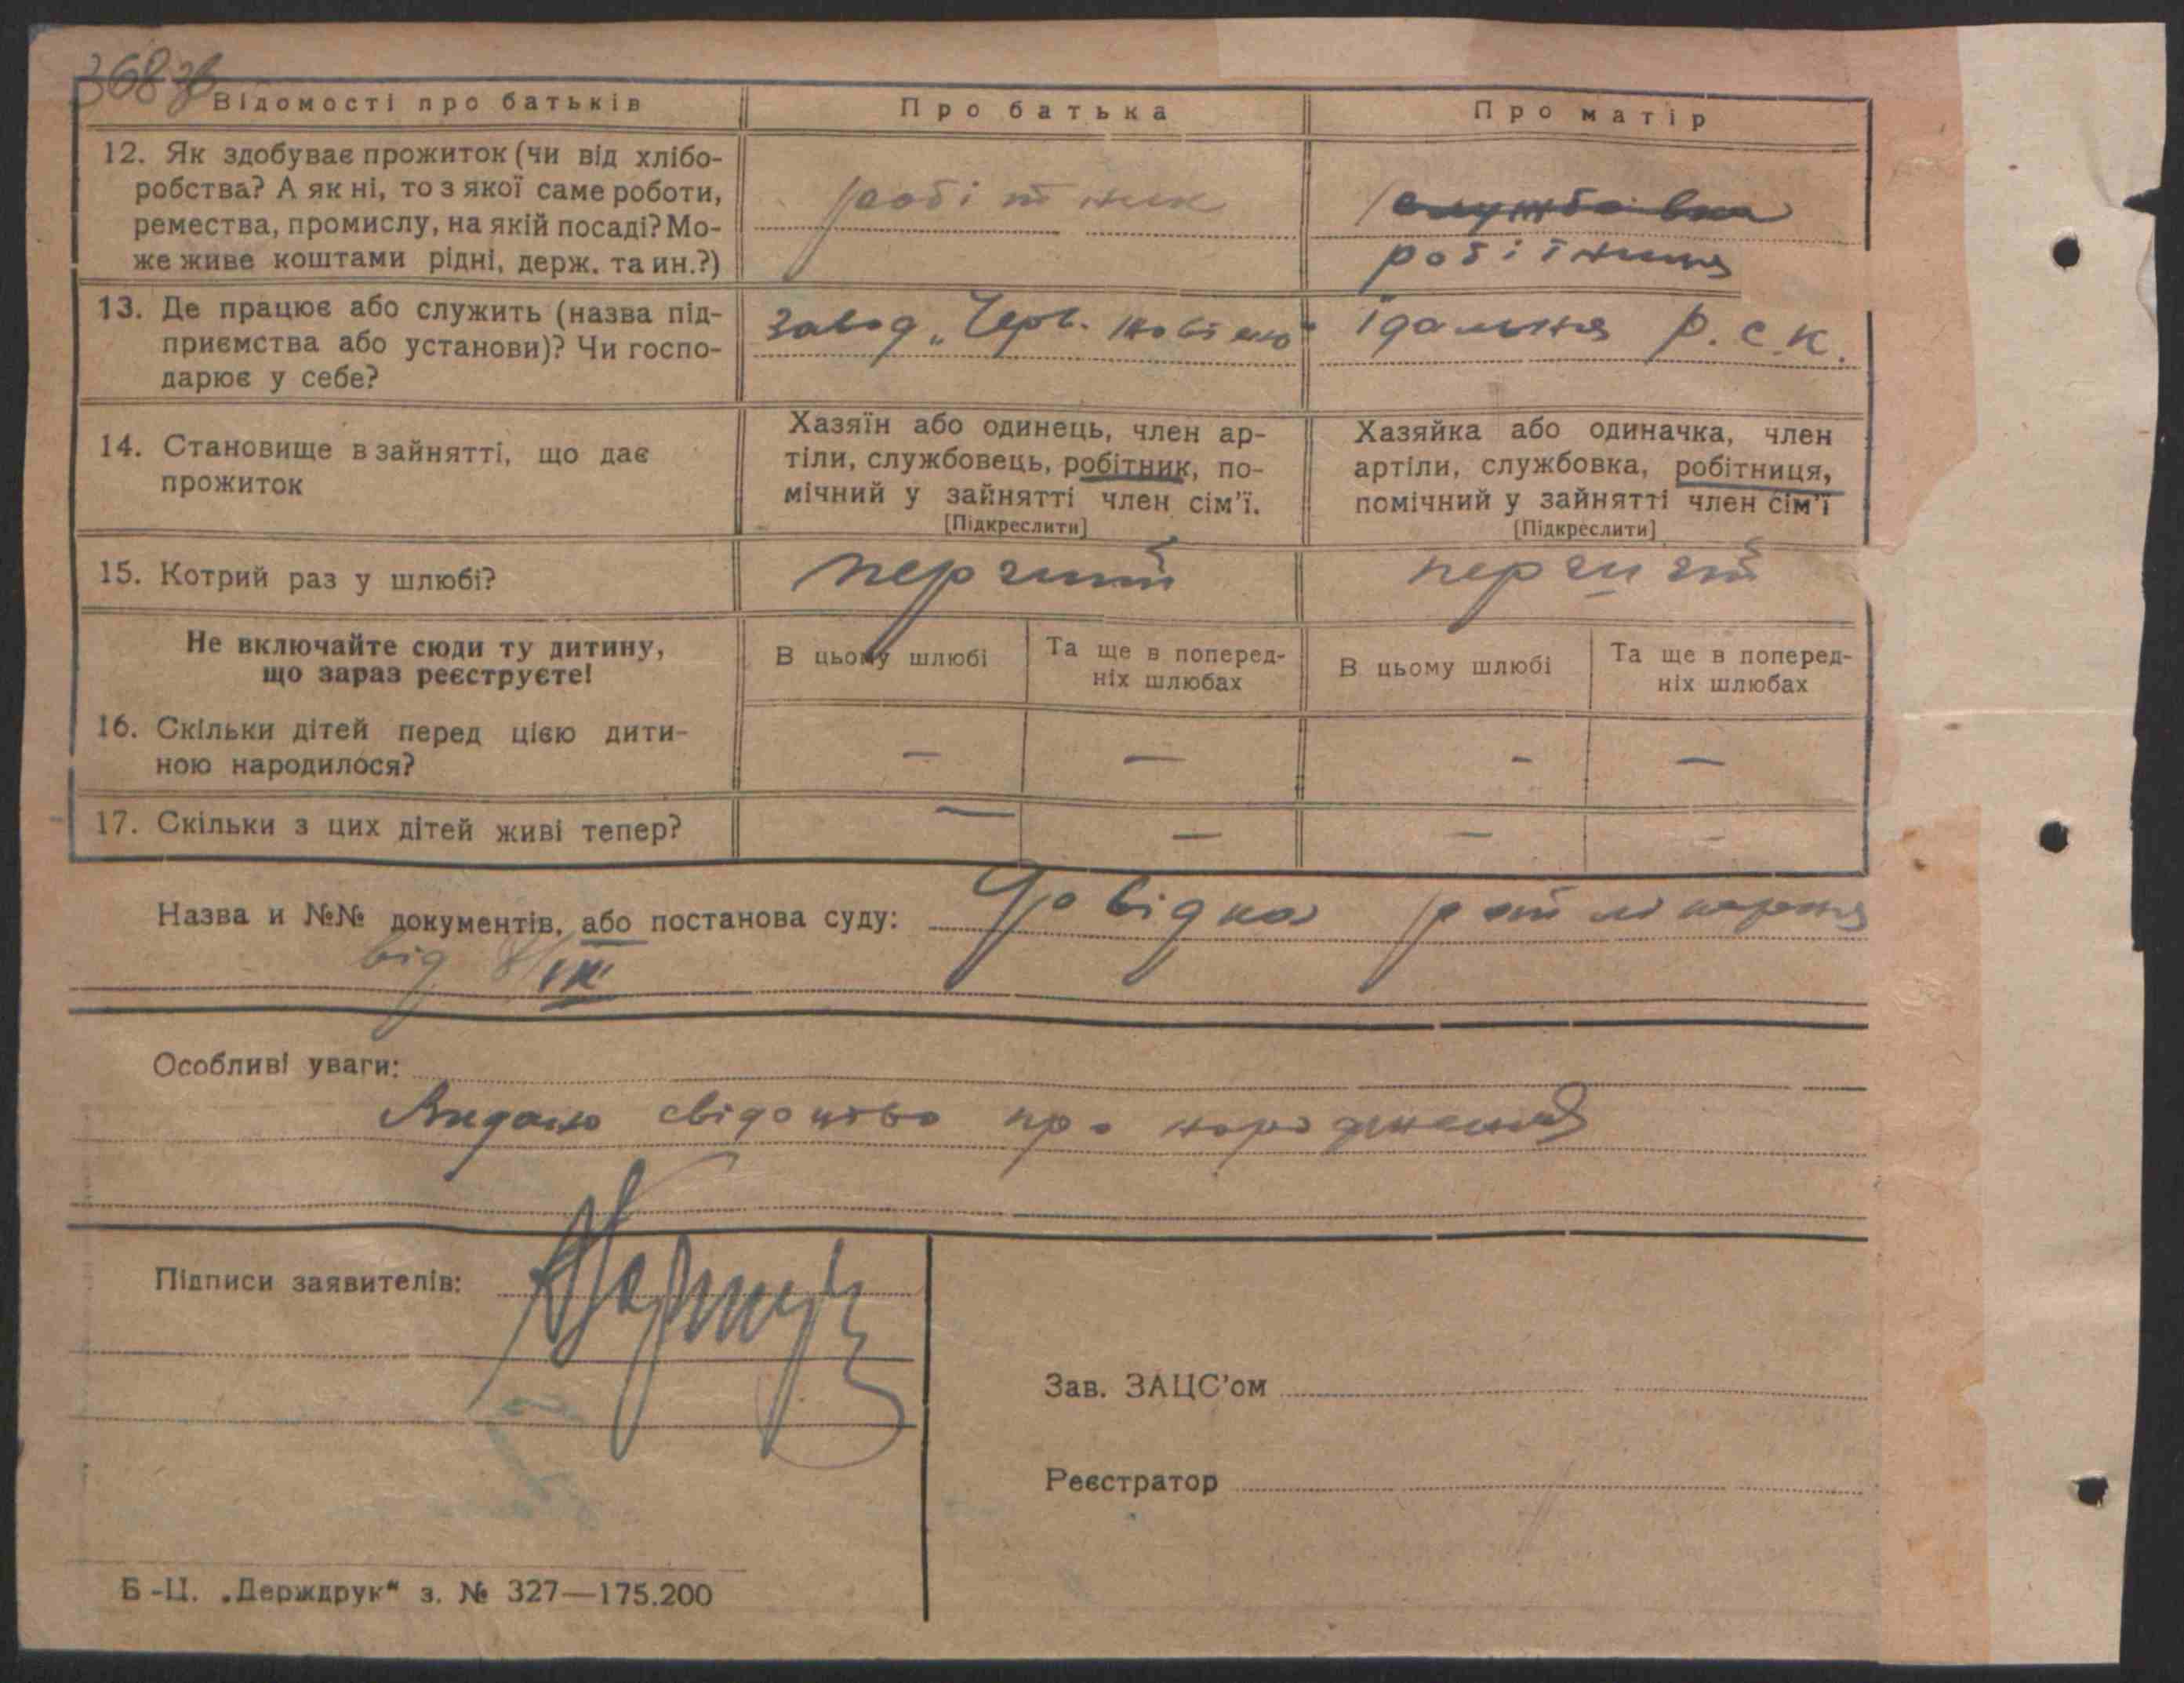 368 зв
Відомості про батьків
Про батька
Про матір
12. Як здобуває прожиток (чи від хлібо-
робства? А як ні, то з якої саме роботи,
ремества, промислу, на якій посаді? Мо-
же живе коштами рідні, держ. та ин.?)
робітник
службовка
робітниця
13. Де працює або служить (назва під-
приємства або установи)? Чи госпо-
дарює у себе?
завод „Черв.
їдальня р.с.к.
14. Становище в зайнятті, що дає
прожиток
Хазяїн або одинець, член ар-
тіли, службовець, робітник, по-
мічний у зайнятті член сім'ї.
[Підкреслити]
Хазяйка або одиначка, член
артіли, службовка, робітниця,
помічний у зайнятті член сім'ї
[Підкреслити]
15. Котрий раз у шлюбі?
перший
перший
Не включайте сюди ту дитину,
що зараз реєструєте!
В цьому шлюбі
Та ще в поперед-
ніх шлюбах
В цьому шлюбі
Та ще в поперед-
ніх шлюбах
16. Скільки дітей перед цією дити-
ною народилося?
— — - —
17. Скільки з цих дітей живі тепер?
— — — -
Назва и №№ документів, або постанова суду: Довідка
від 8/IX
Особливі уваги:
Видано свідоцтво про народження
Підписи заявителів:
Зав. ЗАЦС'ом
Реєстратор
Б-Ц. „Держдрук“ з. № 327—175.200